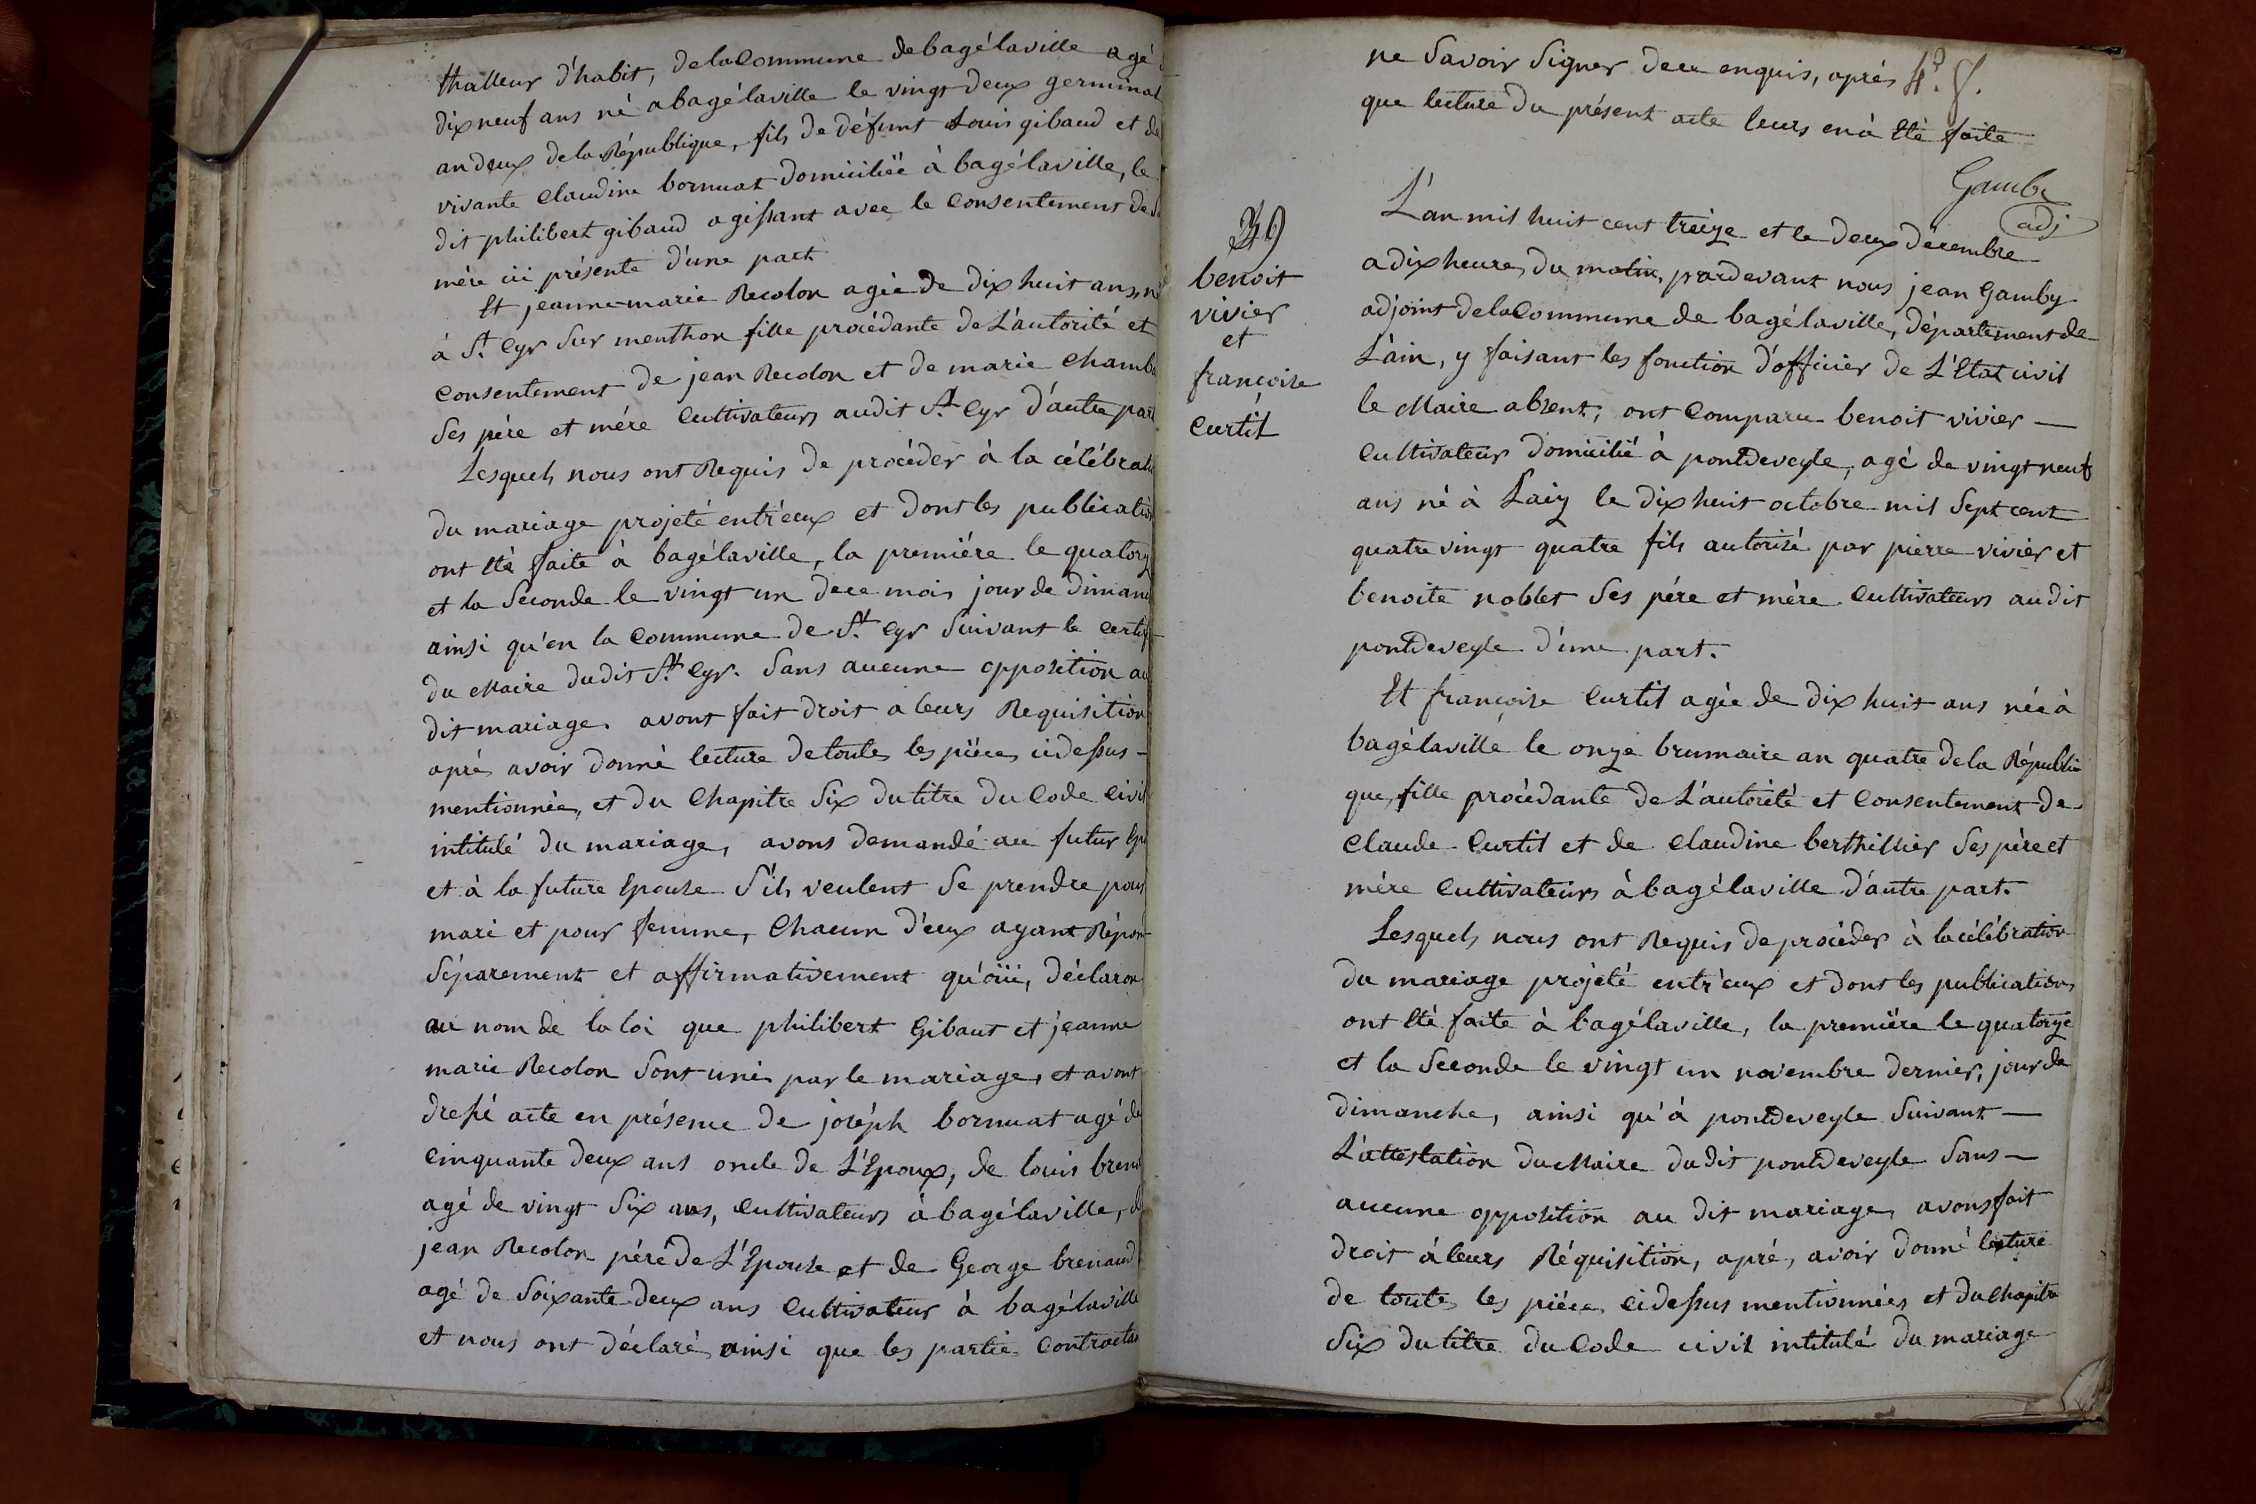 thalleur d'habit, de la Commune de bagélaville agé
dix neuf ans né a bagélaville le vingt deux germinal
an deux de la République, fils de défunt Louis gibaud et de
vivante Claudine bornuat domiciliée à bagélaville, le
dit philibert gibaud agissant avec le Consentement de sa
mère ici présente d'une part
Et jeanne-marie Recolon agée de dix huit ans, né
à St. Cyr sur menthon fille procédante de L'autorité et
Consentement de jean Recolon et de marie Chamb
ses père et mère Cultivateurs audit St. Cyr d'autre part
Lesquels nous ont Requis de procéder à la célébrati
du mariage projeté entr'eux et dont les publicatio
ont été faite à bagélaville, la première le quatorz
et la seconde le vingt un de ce mois jour de diman
ainsi qu'en la Commune de St. Cyr suivant le certif
du Maire dudit St. Cyr. sans aucune opposition au
dit mariage. avont fait droit a leurs Requisition
après avoir donné lecture de toutes les pièces cidessus -
mentionnée, et du Chapitre six du titre du Code Civil
intitulé du mariage, avons demandé au futur Epo
et à la future Epouse s'ils veulent se prendre pour
mari et pour femme, Chacun d'eux ayant Répon
séparement et affirmativement qu'oüi, déclaron
au nom de la loi que philibert Gibaut et jeanne
marie Recolon sont unis par le mariage, et avont
dressé acte en présence de joséph bornuat agé de
Cinquante deux ans oncle de L'Epoux, de louis bren
agé de vingt six ans, Cultivateurs à bagélaville, d
jean Recolon père de L'Epouse et de George brenaud
agé de soixante deux ans Cultivateur à bagélaville
et nous ont déclaré ainsi que les partie Contracta
ne savoir signer de ce enquis, après
que lecture du présent acte leurs en à été faite
Gamby
adj
39
benoit
vivier
et
françoise
Curtil
L'an mil huit cent treize et le deux décembre
a dix heure, du matin, pardevant nous jean Gamby
adjoint de la Commune de bagélaville, département de
L'ain, y faisant les fonction d'officier de L'Etat civil
le Maire absent; ont Comparu benoit vivier -
Cultivateur domicilié à pontdeveyle, agé de vingt neuf
ans né à Laiz le dix huit octobre mil sept cent
quatre vingt quatre fils autorisé par pierre vivier et
benoite noblet ses père et mère Cultivateurs au dit
pontdeveyle d'une part.
Et françoise Curtil agée de dix huit ans née à
bagélaville le onze brumaire an quatre de la Républi
que, fille procédante de L'autorité et Consentement de
Claude Curtil et de Claudine berthillier ses père et
mère Cultivateurs à bagélaville d'autre part.
Lesquels nous ont Requis de procéder à la célébration
du mariage projeté entr'eux et dont les publications
ont été faite à bagélaville, la première le quatorze
et la seconde le vingt un novembre dernier, jour de
dimanche, ainsi qu'à pontdeveyle suivant -
L'attestation du Maire dudit pontdeveyle sans -
aucune opposition au dit mariage, avons fait
droit à leurs Réquisition, après, avoir donné lecture
de toute, les pièce, cidessus mentionnées et du Chapitre
six du titre du Code civil intitulé du mariage